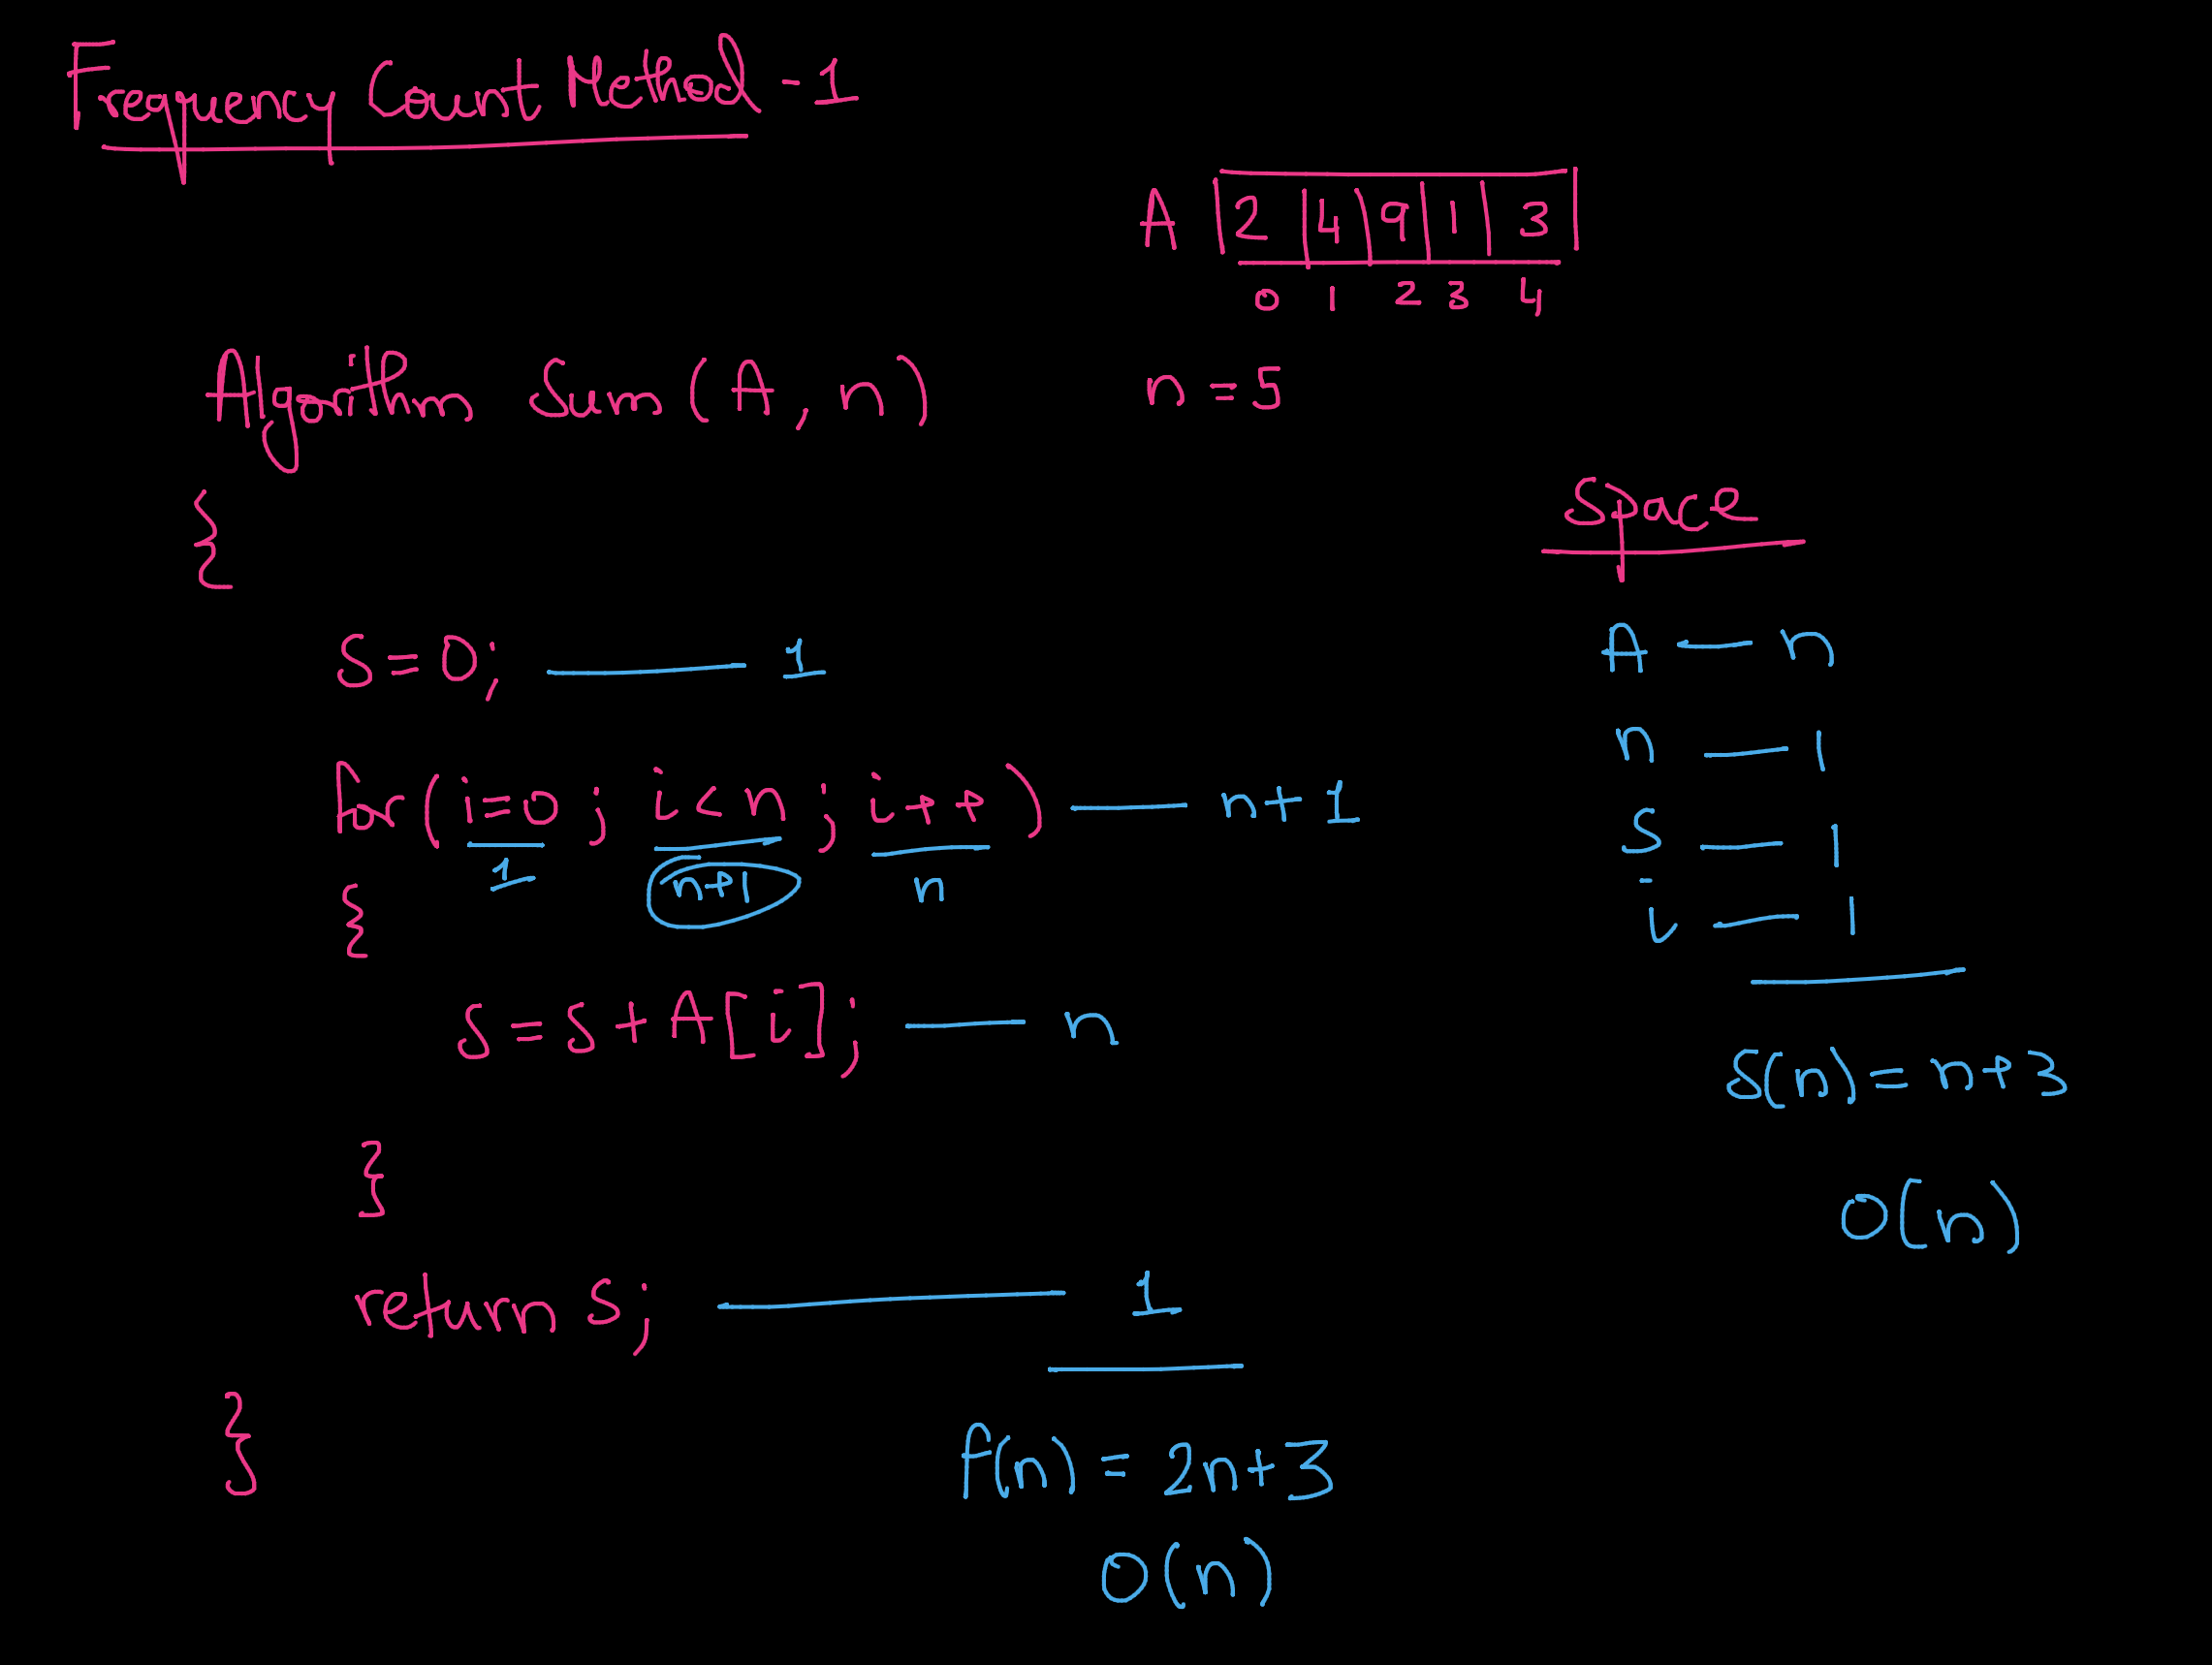 Frequency Count Method - 1
A 2 4 9 1 3
0 1 2 3 4
Algorithm Sum (A, n)
n = 5
{
S = 0; — 1
for ( i=0 ; i<n ; i++ ) — n+1
1 n+1 n
{
S = S + A[i]; — n
}
return S; — 1
}
f(n) = 2n+3
O(n)
Space
A — n
n — 1
S — 1
i — 1
S(n) = n+3
O(n)